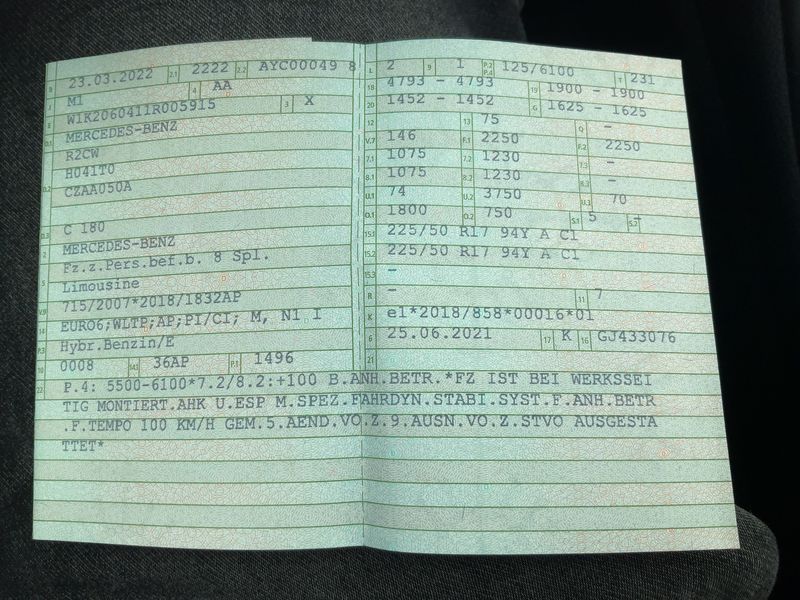 B 23.03.2022 2.1 2222 2.2 AYC00049 8
J M1 4 AA
E W1K2060411R005915 3 X
D.1 MERCEDES-BENZ
R2CW
H041T0
D.2 CZAA050A
D.3 C 180
2 MERCEDES-BENZ
Fz.z.Pers.bef.b. 8 Spl.
5 Limousine
V.9 715/2007*2018/1832AP
14 EURO6;WLTP;AP;PI/CI; M, N1 I
P.3 Hybr.Benzin/E
10 0008 14.1 36AP P.1 1496
L 2 9 1 P.2 P.4 125/6100 T 231
18 4793 - 4793 19 1900 - 1900
20 1452 - 1452 G 1625 - 1625
12 - 13 75 Q -
V.7 146 F.1 2250 F.2 2250
7.1 1075 7.2 1230 7.3 -
8.1 1075 8.2 1230 8.3 -
U.1 74 U.2 3750 U.3 70
O.1 1800 O.2 750 S.1 5 S.2 -
15.1 225/50 R17 94Y A C1
15.2 225/50 R17 94Y A C1
15.3 -
R - 11 7
K e1*2018/858*00016*01
6 25.06.2021 17 K 16 GJ433076
21
22 P.4: 5500-6100*7.2/8.2:+100 B.ANH.BETR.*FZ IST BEI WERKSSEI
TIG MONTIERT.AHK U.ESP M.SPEZ.FAHRDYN.STABI.SYST.F.ANH.BETR
.F.TEMPO 100 KM/H GEM.5.AEND.VO.Z.9.AUSN.VO.Z.STVO AUSGESTA
TTET*